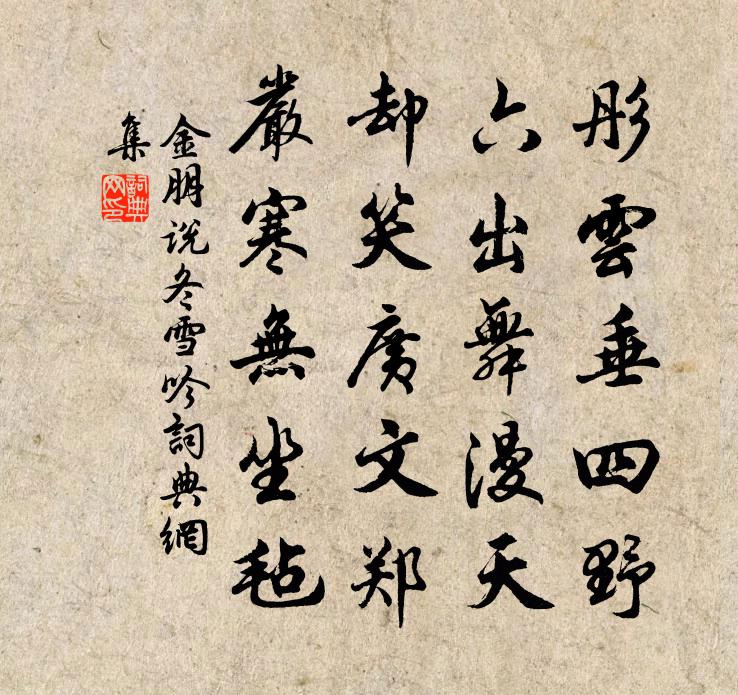 彤雲垂四野
六出舞漫天
却笑廣文郑
嚴寒無坐毡
金朋说冬雪吟詞典網
集
詞典
网印